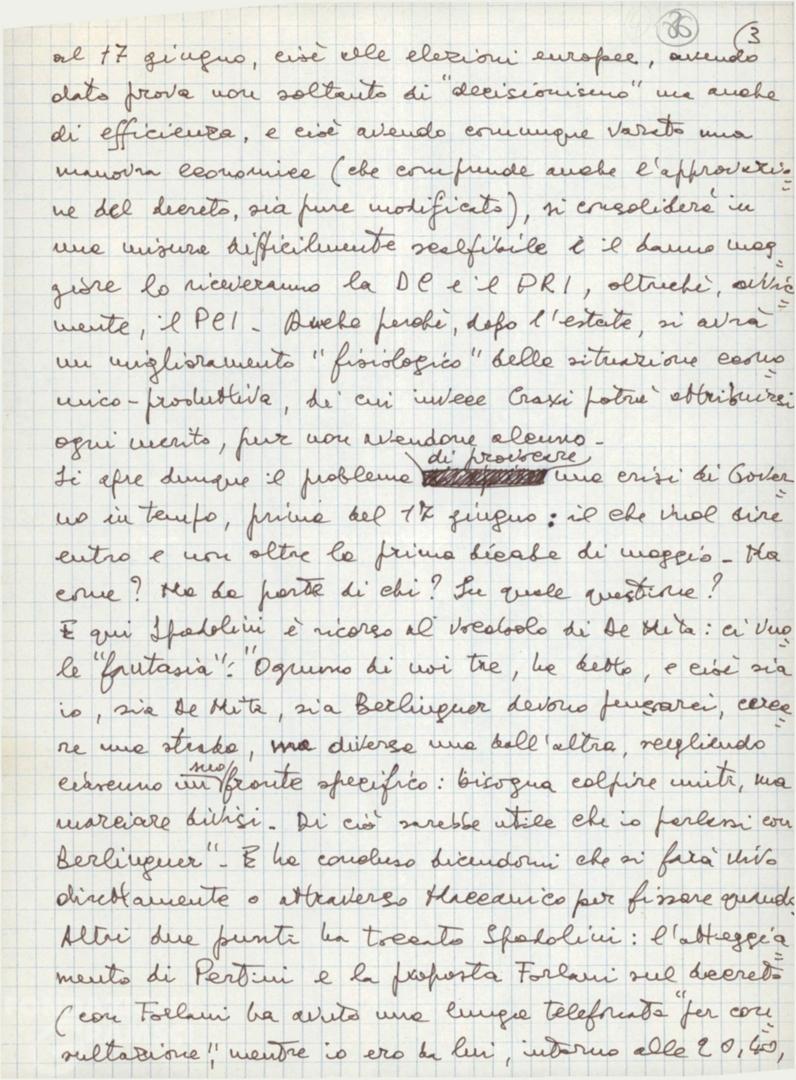 36 (3
al 17 giugno, cioè alle elezioni europee, avendo
dato prova non soltanto di "decisionismo" ma anche
di efficienza, e cioè avendo comunque varato una
manovra economica (che comprende anche l'approvazio=
ne del decreto, sia pure modificato), si consoliderà in
una misura difficilmente scalfibile e il danno mag=
giore lo riceveranno la DC e il PRI, oltrechè, ovvia=
mente, il PCI. Anche perchè, dopo l'estate, si avrà
un miglioramento "fisiologico" della situazione econo=
mico-produttiva, di cui invece Craxi potrà attribuirsi
ogni merito, pur non avendone alcuno.
di provocare
Si apre dunque il problema una crisi di Gover
no in tempo, prima del 17 giugno: il che vuol dire
entro e non oltre la prima decade di maggio. Ma
come? Ma da parte di chi? Su quale questione?
E qui Spadolini è ricorso al vocabolo di De Mita: ci vuo=
le "fantasia": "Ognuno di noi tre, ha detto, e cioè sia
io, sia De Mita, sia Berlinguer devono pensarci, cerca=
re una strada, ma diversa una dall'altra, scegliendo
suo
ciascuno un fronte specifico: bisogna colpire uniti, ma
marciare divisi. Di ciò sarebbe utile che io parlassi con
Berlinguer". E ha concluso dicendomi che si farà vivo
direttamente o attraverso Maccanico per fissare quando.
Altri due punti ha toccato Spadolini: l'atteggia=
mento di Pertini e la proposta Forlani sul decreto
(con Forlani ha avuto una lunga telefonata "per con=
sultazione", mentre io ero da lui, intorno alle 20,40,